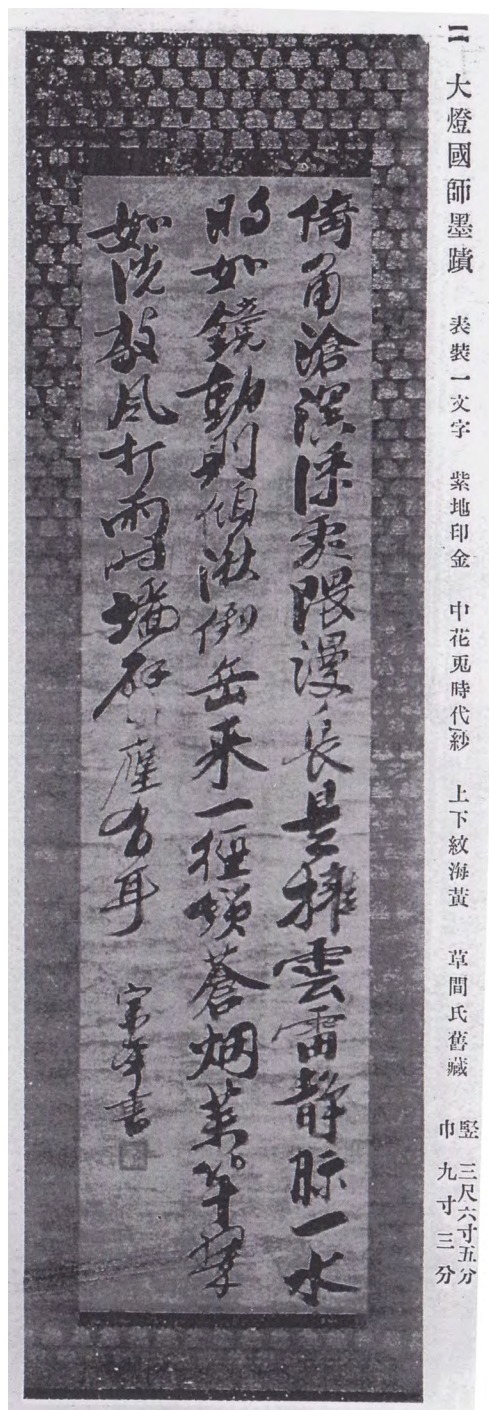 二 大燈國師墨蹟 表裝一文字 紫地印金 中花兎時代紗 上下紋海黃 草間氏舊藏 竪 三尺六寸五分
巾 九寸三分
滄溟深處隈漫長是擁雲雷靜臨一水
明如鏡動則傾湫倒岳来一徑蒼烟萬竿翠
如洗敲風打雨時墻壁應有耳
宗峰書